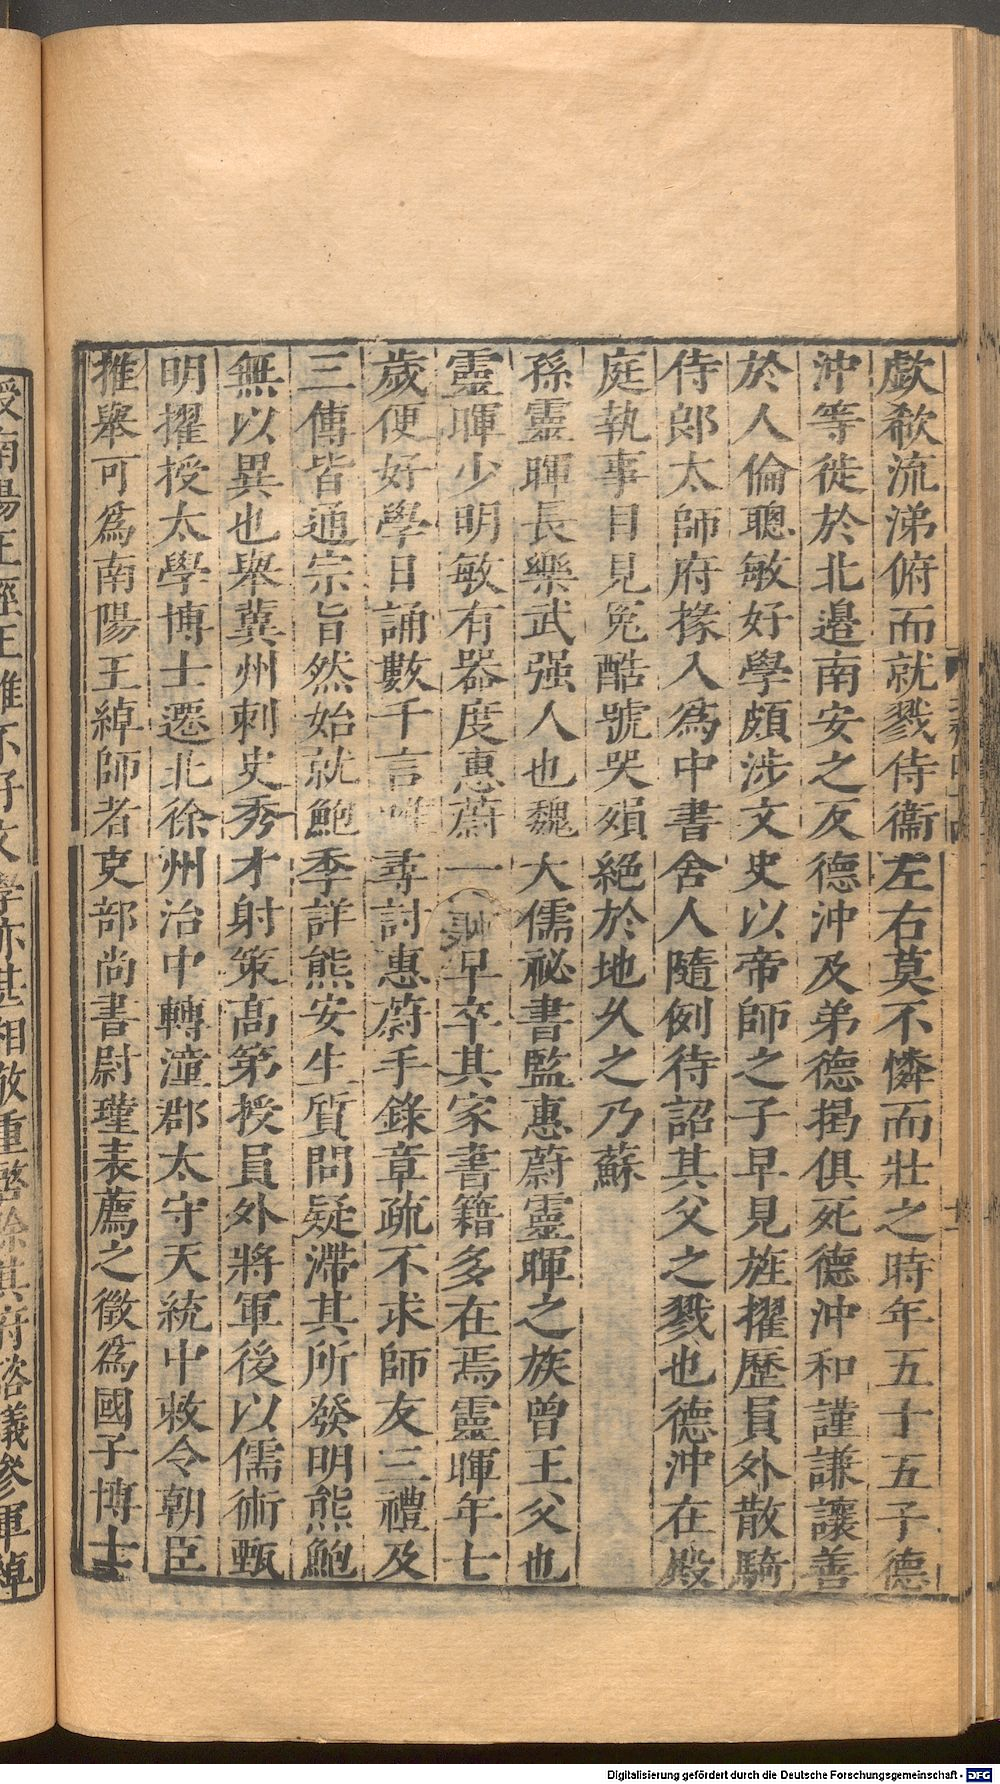 歔欷流涕俯而就戮侍衞左右莫不憐而壯之時年五十五子德
沖等徙於北邉南安之反德沖及弟德揭俱死德沖和謹謙讓善
於人倫聰敏好學頗涉文史以帝師之子早見旌擢歷員外散騎
侍郎太師府掾入爲中書舍人隨例待詔其父之戮也德沖在殿
庭執事目見冤酷號哭殞絕於地久之乃蘇
孫靈暉長樂武强人也魏大儒祕書監惠蔚靈暉之族曾王父也
靈暉少明敏有器度惠蔚一早卒其家書籍多在焉靈暉年七
歲便好學日誦數千言唯尋討惠蔚手錄章疏不求師友三禮及
三傳皆通宗旨然始就鮑季詳熊安生質問疑滯其所發明熊鮑
無以異也舉冀州刺史秀才射策髙第授員外將軍後以儒術甄
明擢授太學博士遷北徐州治中轉潼郡太守天統中敕令朝臣
推舉可爲南陽王綽師者吏部尚書尉瑾表薦之徵爲國子博士
授南陽王經王雖不好文學亦甚相敬重啓除其府諮議參軍綽
Digitalisierung gefördert durch die Deutsche Forschungsgemeinschaft - DFG